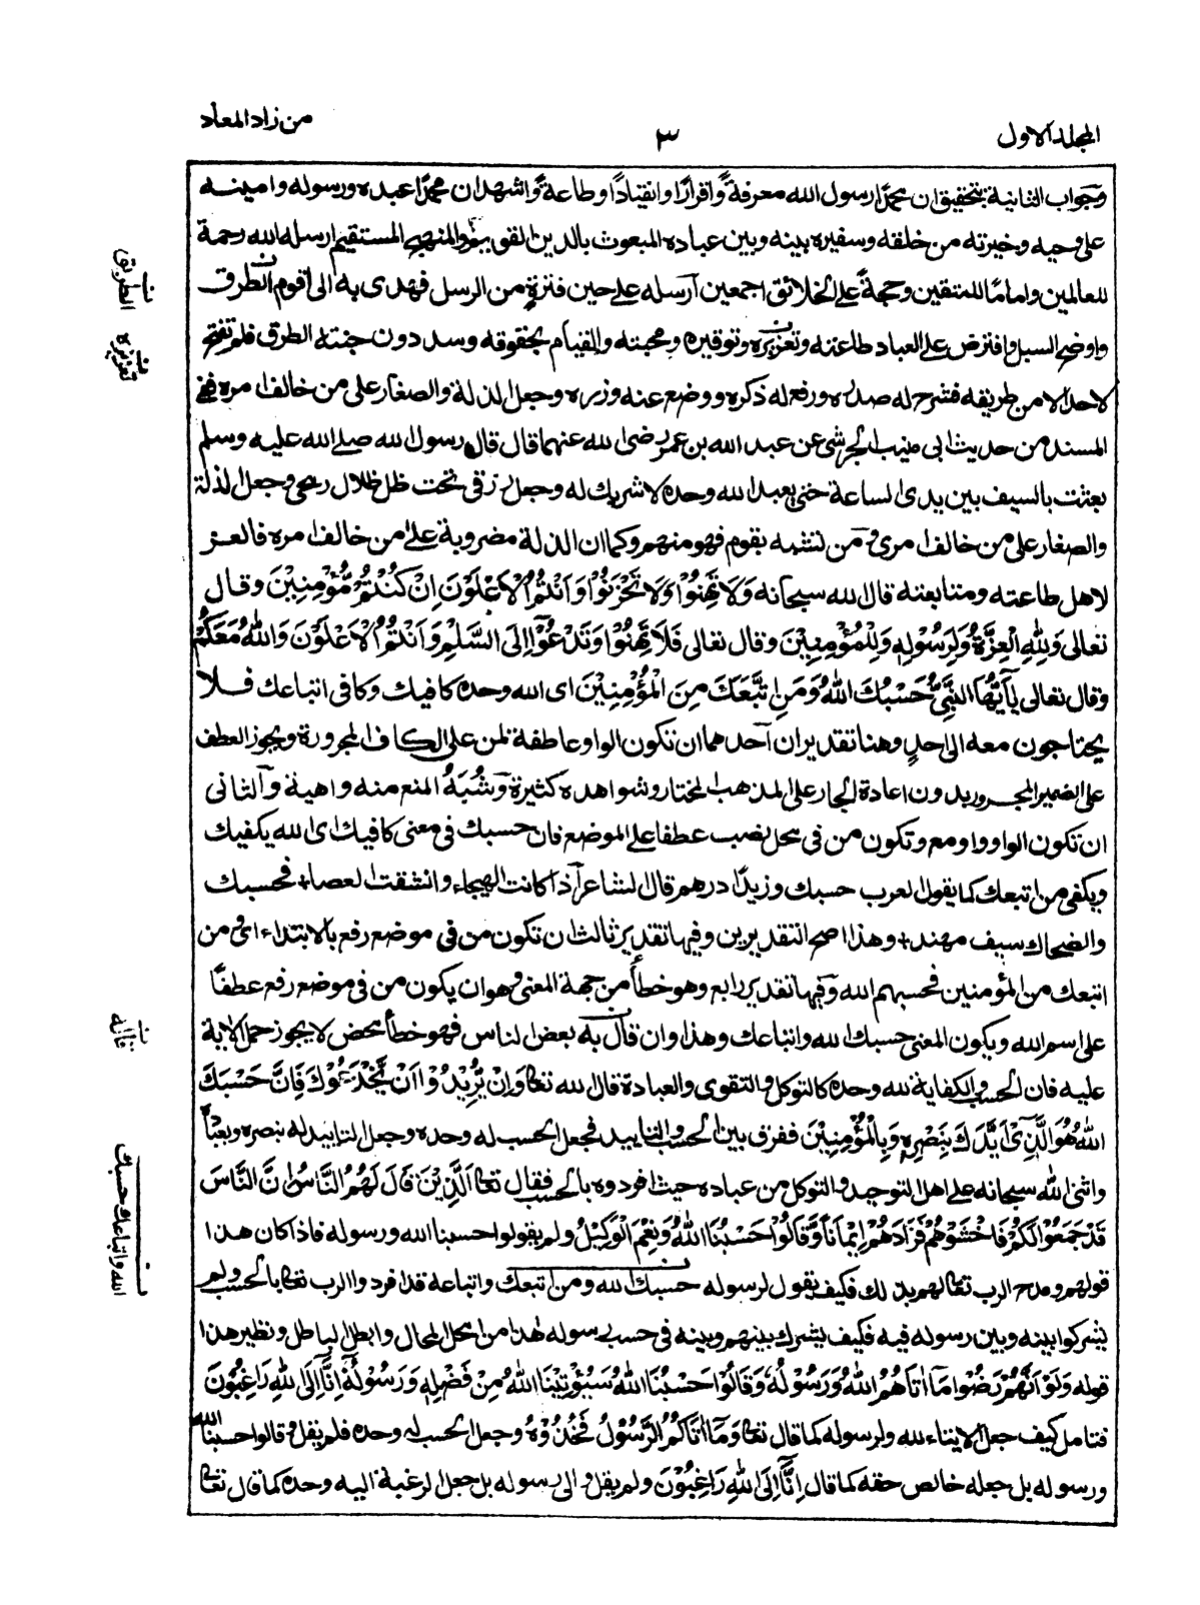 المجلد الاول
٣
من زاد المعاد
وجواب الثانية بتحقيق ان محمدا رسول الله معرفةً واقرارًا وانقيادًا وطاعةً واشهد ان محمدًا عبده ورسوله وامينه
على وحيه وخيرته من خلقه وسفيره بينه وبين عباده المبعوث بالدين القويم والمنهج المستقيم ارسله الله رحمة
للعالمين واماما للمتقين وحجةً على الخلائق اجمعين ارسله على حين فترةٍ من الرسل فهدى به الى اقوم الطرق
واوضح السبل وافترض على العباد طاعته وتعزيره وتوقيره ومحبته والقيام بحقوقه وسد دون جنته الطرق فلم تفتح
لاحد الا من طريقه فشرح له صدره ورفع له ذكره ووضع عنه وزره وجعل الذلة والصغار على من خالف امره ففي
المسند من حديث ابى منيب الجرشى عن عبد الله بن عمر رضى الله عنهما قال قال رسول الله صلے الله عليه وسلم
بعثت بالسيف بين يدى الساعة حتى يعبد الله وحده لا شريك له وجعل رزقى تحت ظل ظلال رمحى وجعل الذلة
والصغار على من خالف امرى ومن تشبه بقوم فهو منهم وكما ان الذلة مضروبة على من خالف امره فالعز
لاهل طاعته ومتابعته قال الله سبحانه وَلَا تَهِنُوْا وَلَا تَحْزَنُوْا وَاَنْتُمُ الْاَعْلَوْنَ اِنْ كُنْتُمْ مُّؤْمِنِيْنَ وقال
تعالى وَلِلّٰهِ الْعِزَّةُ وَلِرَسُوْلِهٖ وَلِلْمُؤْمِنِيْنَ وقال تعالى فَلَا تَهِنُوْا وَتَدْعُوْٓا اِلَى السَّلْمِ وَاَنْتُمُ الْاَعْلَوْنَ وَاللّٰهُ مَعَكُمْ
وقال تعالى يٰٓاَيُّهَا النَّبِيُّ حَسْبُكَ اللّٰهُ وَمَنِ اتَّبَعَكَ مِنَ الْمُؤْمِنِيْنَ اى الله وحده كافيك وكافى اتباعك فلا
يحتاجون معه الى احدٍ وهنا تقديران احدهما ان تكون الواو عاطفة لمن على الكاف المجرورة ويجوز العطف
على الضمير المجرور بدون اعادة الجار على المذهب المختار وشواهده كثيرة وشُبَهُ المنع منه واهية والثانى
ان تكون الواو واو مع وتكون من فى محل نصب عطفا على الموضع فان حسبك فى معنى كافيك اى الله يكفيك
ويكفى من اتبعك كما يقول العرب حسبك وزيدًا درهم قال الشاعر اذا كانت الهيجاء وانشقت العصا + فحسبك
والضحاك سيف مهند + وهذا اصح التقديرين وفيها تقدير ثالث ان تكون من فى موضع رفع بالابتداء اى ومن
اتبعك من المؤمنين فحسبهم الله وفيها تقدير رابع وهو خطأ من جهة المعنى وهو ان يكون من فى موضع رفع عطفًا
على اسم الله ويكون المعنى حسبك الله واتباعك وهذا وان قال به بعض الناس فهو خطأ محض لا يجوز حمل الاية
عليه فان الحسب والكفاية لله وحده كالتوكل والتقوى والعبادة قال الله تعالى وَاِنْ يُّرِيْدُوْٓا اَنْ يَّخْدَعُوْكَ فَاِنَّ حَسْبَكَ
اللّٰهُ هُوَ الَّذِيْٓ اَيَّدَكَ بِنَصْرِهٖ وَبِالْمُؤْمِنِيْنَ ففرق بين الحسب والتاييد فجعل الحسب له وحده وجعل التاييد له بنصره وبعباده
واثنى الله سبحانه على اهل التوحيد والتوكل من عباده حيث افردوه بالحسب فقال تعالى اَلَّذِيْنَ قَالَ لَهُمُ النَّاسُ اِنَّ النَّاسَ
قَدْ جَمَعُوْا لَكُمْ فَاخْشَوْهُمْ فَزَادَهُمْ اِيْمَانًا وَّقَالُوْا حَسْبُنَا اللّٰهُ وَنِعْمَ الْوَكِيْلُ ولم يقولوا حسبنا الله ورسوله فاذا كان هذا
قولهم ومدح الرب تعالى لهم بذلك فكيف يقول لرسوله حسبك الله ومن اتبعك واتباعه قد افردوا الرب تعالى بالحسب ولم
يشركوا بينه وبين رسوله فيه فكيف يشرك بينهم وبينه فى حسب رسوله هذا من امحل المحال وابطل الباطل ونظير هذا
قوله وَلَوْ اَنَّهُمْ رَضُوْا مَآ اٰتَاهُمُ اللّٰهُ وَرَسُوْلُهٗ وَقَالُوْا حَسْبُنَا اللّٰهُ سَيُؤْتِيْنَا اللّٰهُ مِنْ فَضْلِهٖ وَرَسُوْلُهٗٓ اِنَّآ اِلَى اللّٰهِ رَاغِبُوْنَ
فتامل كيف جعل الايتاء لله ولرسوله كما قال تعالى وَمَآ اٰتَاكُمُ الرَّسُوْلُ فَخُذُوْهُ وجعل الحسب له وحده فلم يقل وقالوا حسبنا الله
ورسوله بل جعله خالص حقه كما قال اِنَّآ اِلَى اللّٰهِ رَاغِبُوْنَ ولم يقل والى رسوله بل جعل الرغبة اليه وحده كما قال تعالى
ن
الطريق
ن
تعزيزه
ن
قاله
ن
حسبك
الله واتباعك